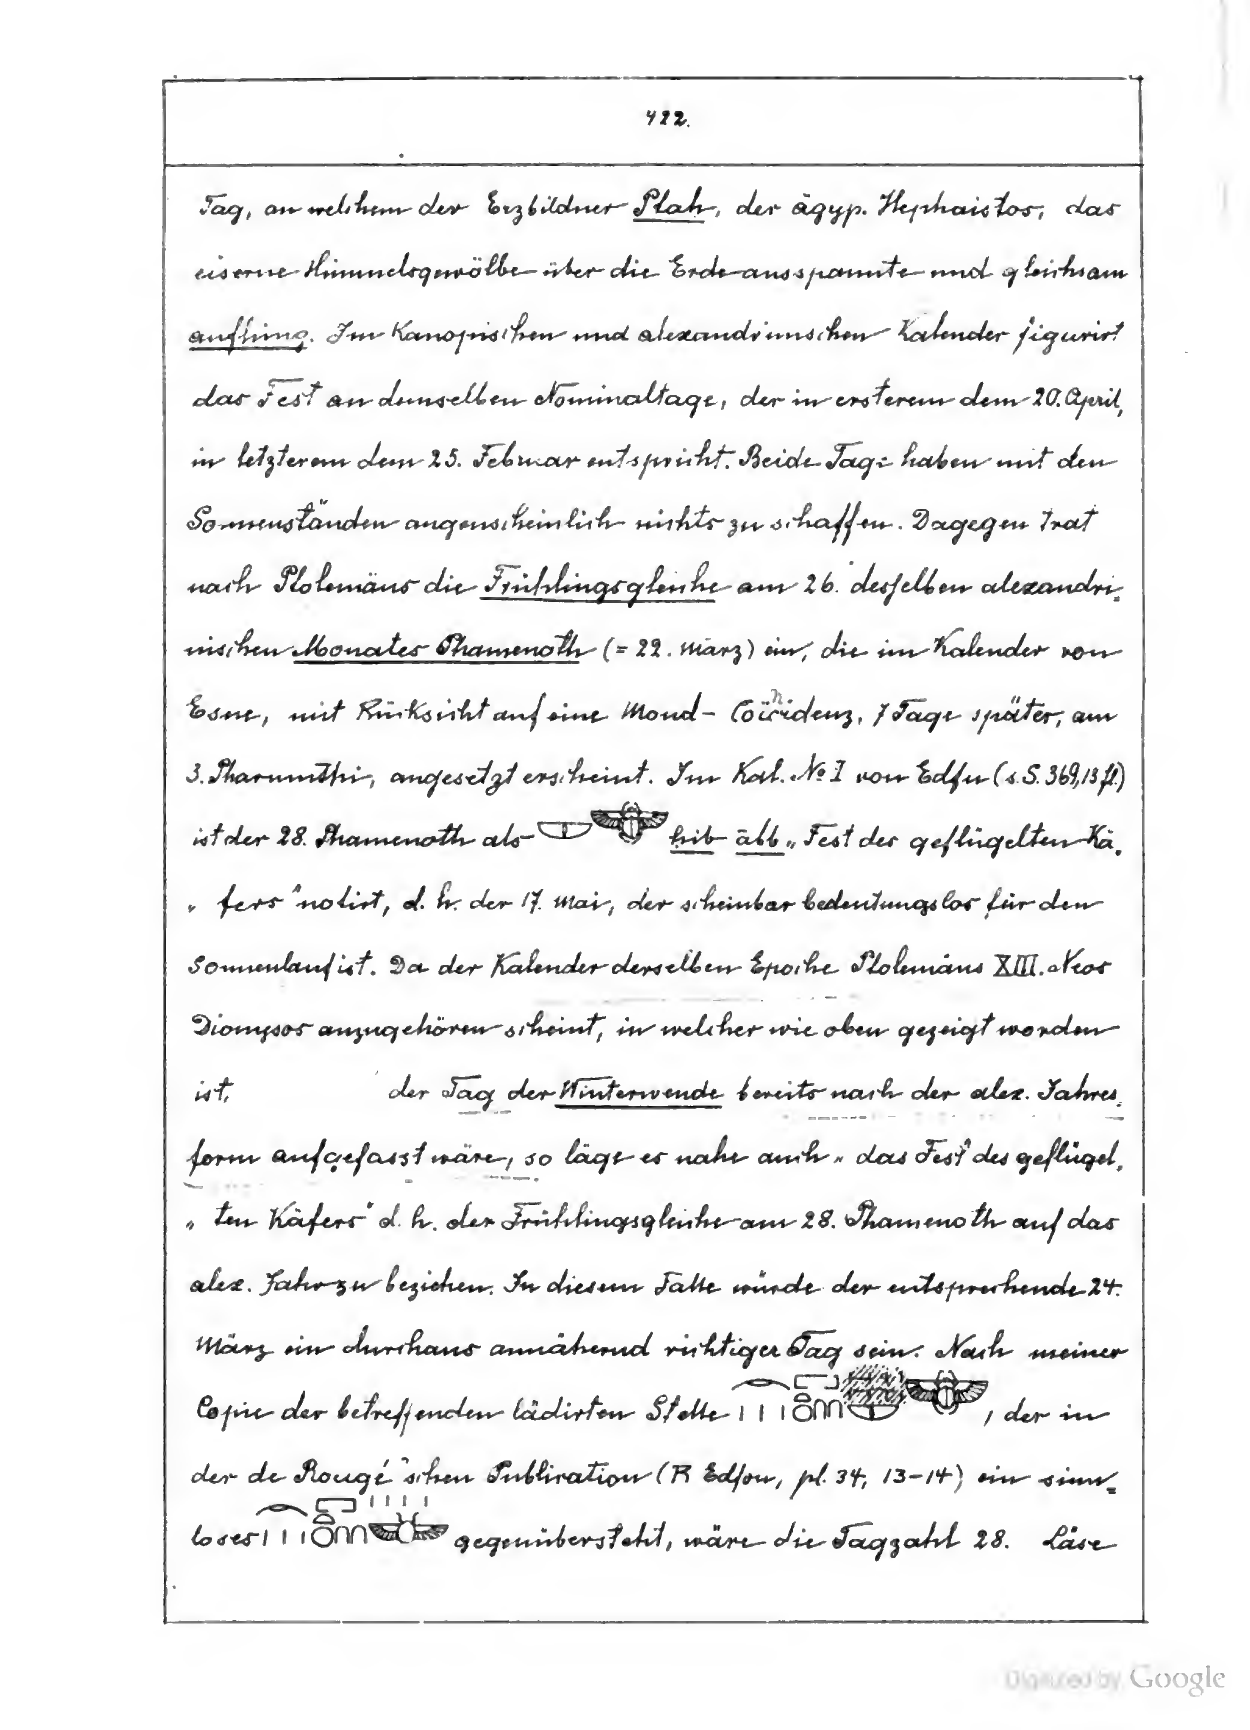 422.
Tag, an welchem der Erzbildner Ptah, der ägyp. Hephaistos, das
eiserne Himmelsgewölbe über die Erde ausspannte und gleichsam
aufhing. Im Kanopischen und alexandrinischen Kalender figurirt
das Fest an demselben Nominaltage, der in ersterem dem 20. April,
in letzterem dem 25. Februar entspricht. Beide Tage haben mit den
Sonnenständen augenscheinlich nichts zu schaffen. Dagegen trat
nach Ptolemäus die Frühlingsgleiche am 26. desselben alexandri-
nischen Monates Phamenoth (= 22. März) ein, die im Kalender von
Esne, mit Rücksicht auf eine Mond-Coïncidenz, 7 Tage später, am
3. Pharmuthi, angesetzt erscheint. Im Kal. No I von Edfu (s. S. 369, 13 fl.)
ist der 28. Phamenoth als hib äbb „Fest des geflügelten Kä-
„fers" notirt, d. h. der 17. Mai, der scheinbar bedeutungslos für den
Sonnenlauf ist. Da der Kalender derselben Epoche Ptolemäus XIII. Neos
Dionysos anzugehören scheint, in welcher wie oben gezeigt worden
ist, der Tag der Winterwende bereits nach der alex. Jahres-
form aufgefasst wäre, so läge es nahe auch „das Fest des geflügel-
„ten Käfers" d. h. der Frühlingsgleiche am 28. Phamenoth auf das
alex. Jahr zu beziehen. In diesem Falle würde der entsprechende 24.
März ein durchaus annähernd richtiger Tag sein. Nach meiner
Copie der betreffenden lädirten Stelle , der in
der de Rougé'schen Publication (R Edfou, pl. 34, 13-14) ein sinn-
loses gegenübersteht, wäre die Tagzahl 28. Läse
Digitized by Google